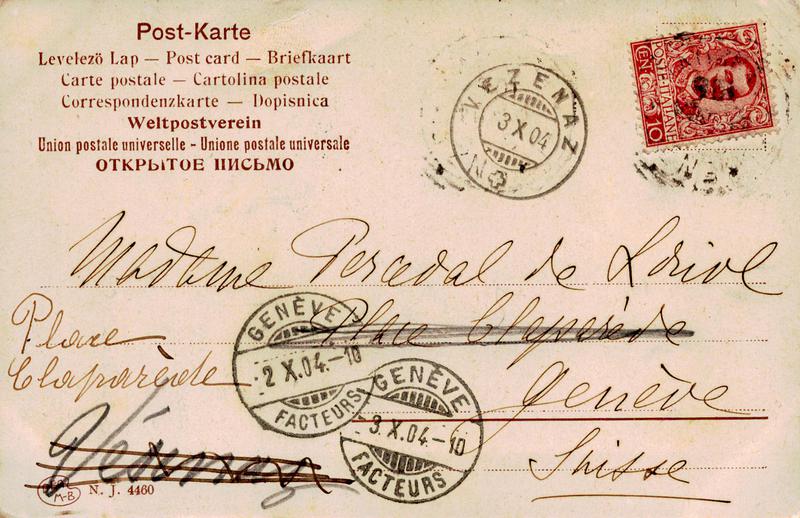 Post-Karte
Levelezö Lap — Post card — Briefkaart
Carte postale — Cartolina postale
Correspondenzkarte — Dopisnica
Weltpostverein
Union postale universelle - Unione postale universale
ОТКРЫТОЕ ПИСЬМО
VEZENAZ
3 X 04
POSTE ITALIANE
CENT. 10
Madame Perceval de Loriol
Place Claparède
Place
Claparède
Genève
Suisse
GENÈVE
2 X.04.-10
FACTEURS
GENÈVE
3 X.04-10
FACTEURS
M-B
N. J. 4460